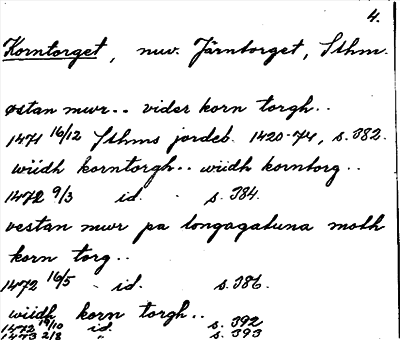 4.
Korntorget, nuv. Järntorget, Sthm.
østan mwr.. vider korn torgh..
1471 16/12 Sthms jordeb. 1420-74, s. 382.
wiidh korntorgh.. wiidh korntorg..
1472 9/3 id. s. 384.
vestan mwr pa longagatuna moth
korn torg..
1472 16/5 - id. s. 386.
wiidh korn torgh..
1472 19/10 id. s. 392
1473 2/8 " s. 393